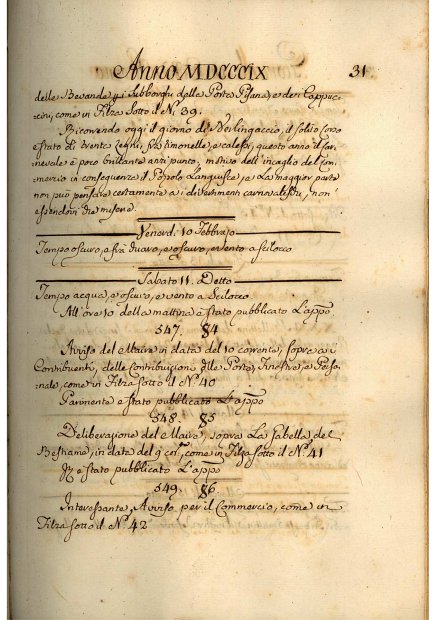 Anno MDCCCIX 31
delle Bevande p i Subborghi della Porta Pisana, e dei Cappuc-
cini, come in Filza Sotto il N.º 39.
Ricorrendo oggi il giorno di Berlingaccio, il solito Corso
è stato di Trenta legni, fra Timonelle, e calessi, questo anno il Car-
nevale è poco brillante anzi punto, motivo dell'incaglio del Com-
mercio in conseguenza il Popolo Languisce, e La maggior parte
non può pensare certamente a i divertimenti carnovaleschi, non
essendovi che miserie.
Venerdi 10 Febbrajo
Tempo oscuro, e oscuro, e vento a Scilocco
Sabato 11. Detto
Tempo acqua, e oscuro, e vento a Scilocco
All'ore 10 della mattina è stato pubblicato L'appo
547. 84
Avviso del Maire in data del 10 corrente, sopra a i
Contribuenti, delle Contribuzioni delle Porte, Finestre, e Perso-
nale, come in Filza sotto il N.º 40
Parimente è stato pubblicato L'appo
548. 85
Deliberazione del Maire, sopra La Gabella del
Bestiame, in data del 9 corr, come in Filza sotto il N.º 41
È stato pubblicato L'appo
549. 86
Interessante, Avviso per il Commercio, come in
Filza sotto il N.º 42